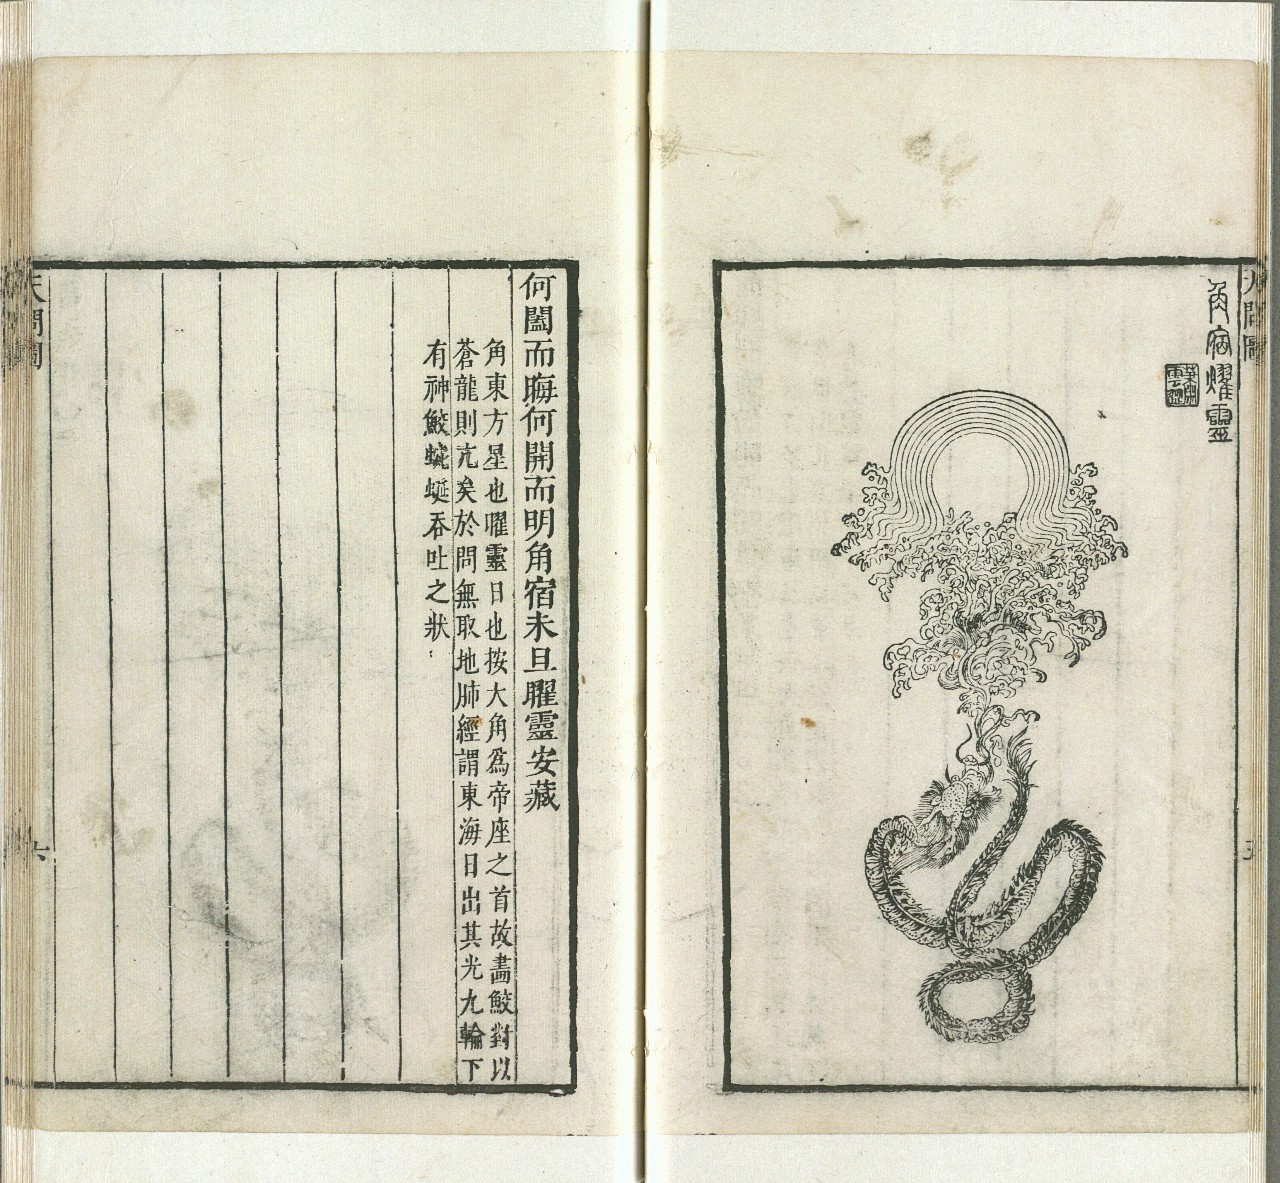 角宿耀靈
天問圖
五
何闔而晦何開而明角宿未旦曜靈安藏
角東方星也曜靈日也按大角為帝座之首故畫鮫對以
蒼龍則亢矣於問無取地肺經謂東海日出其光九輪下
有神鮫蜿蜒吞吐之狀
天問圖
六